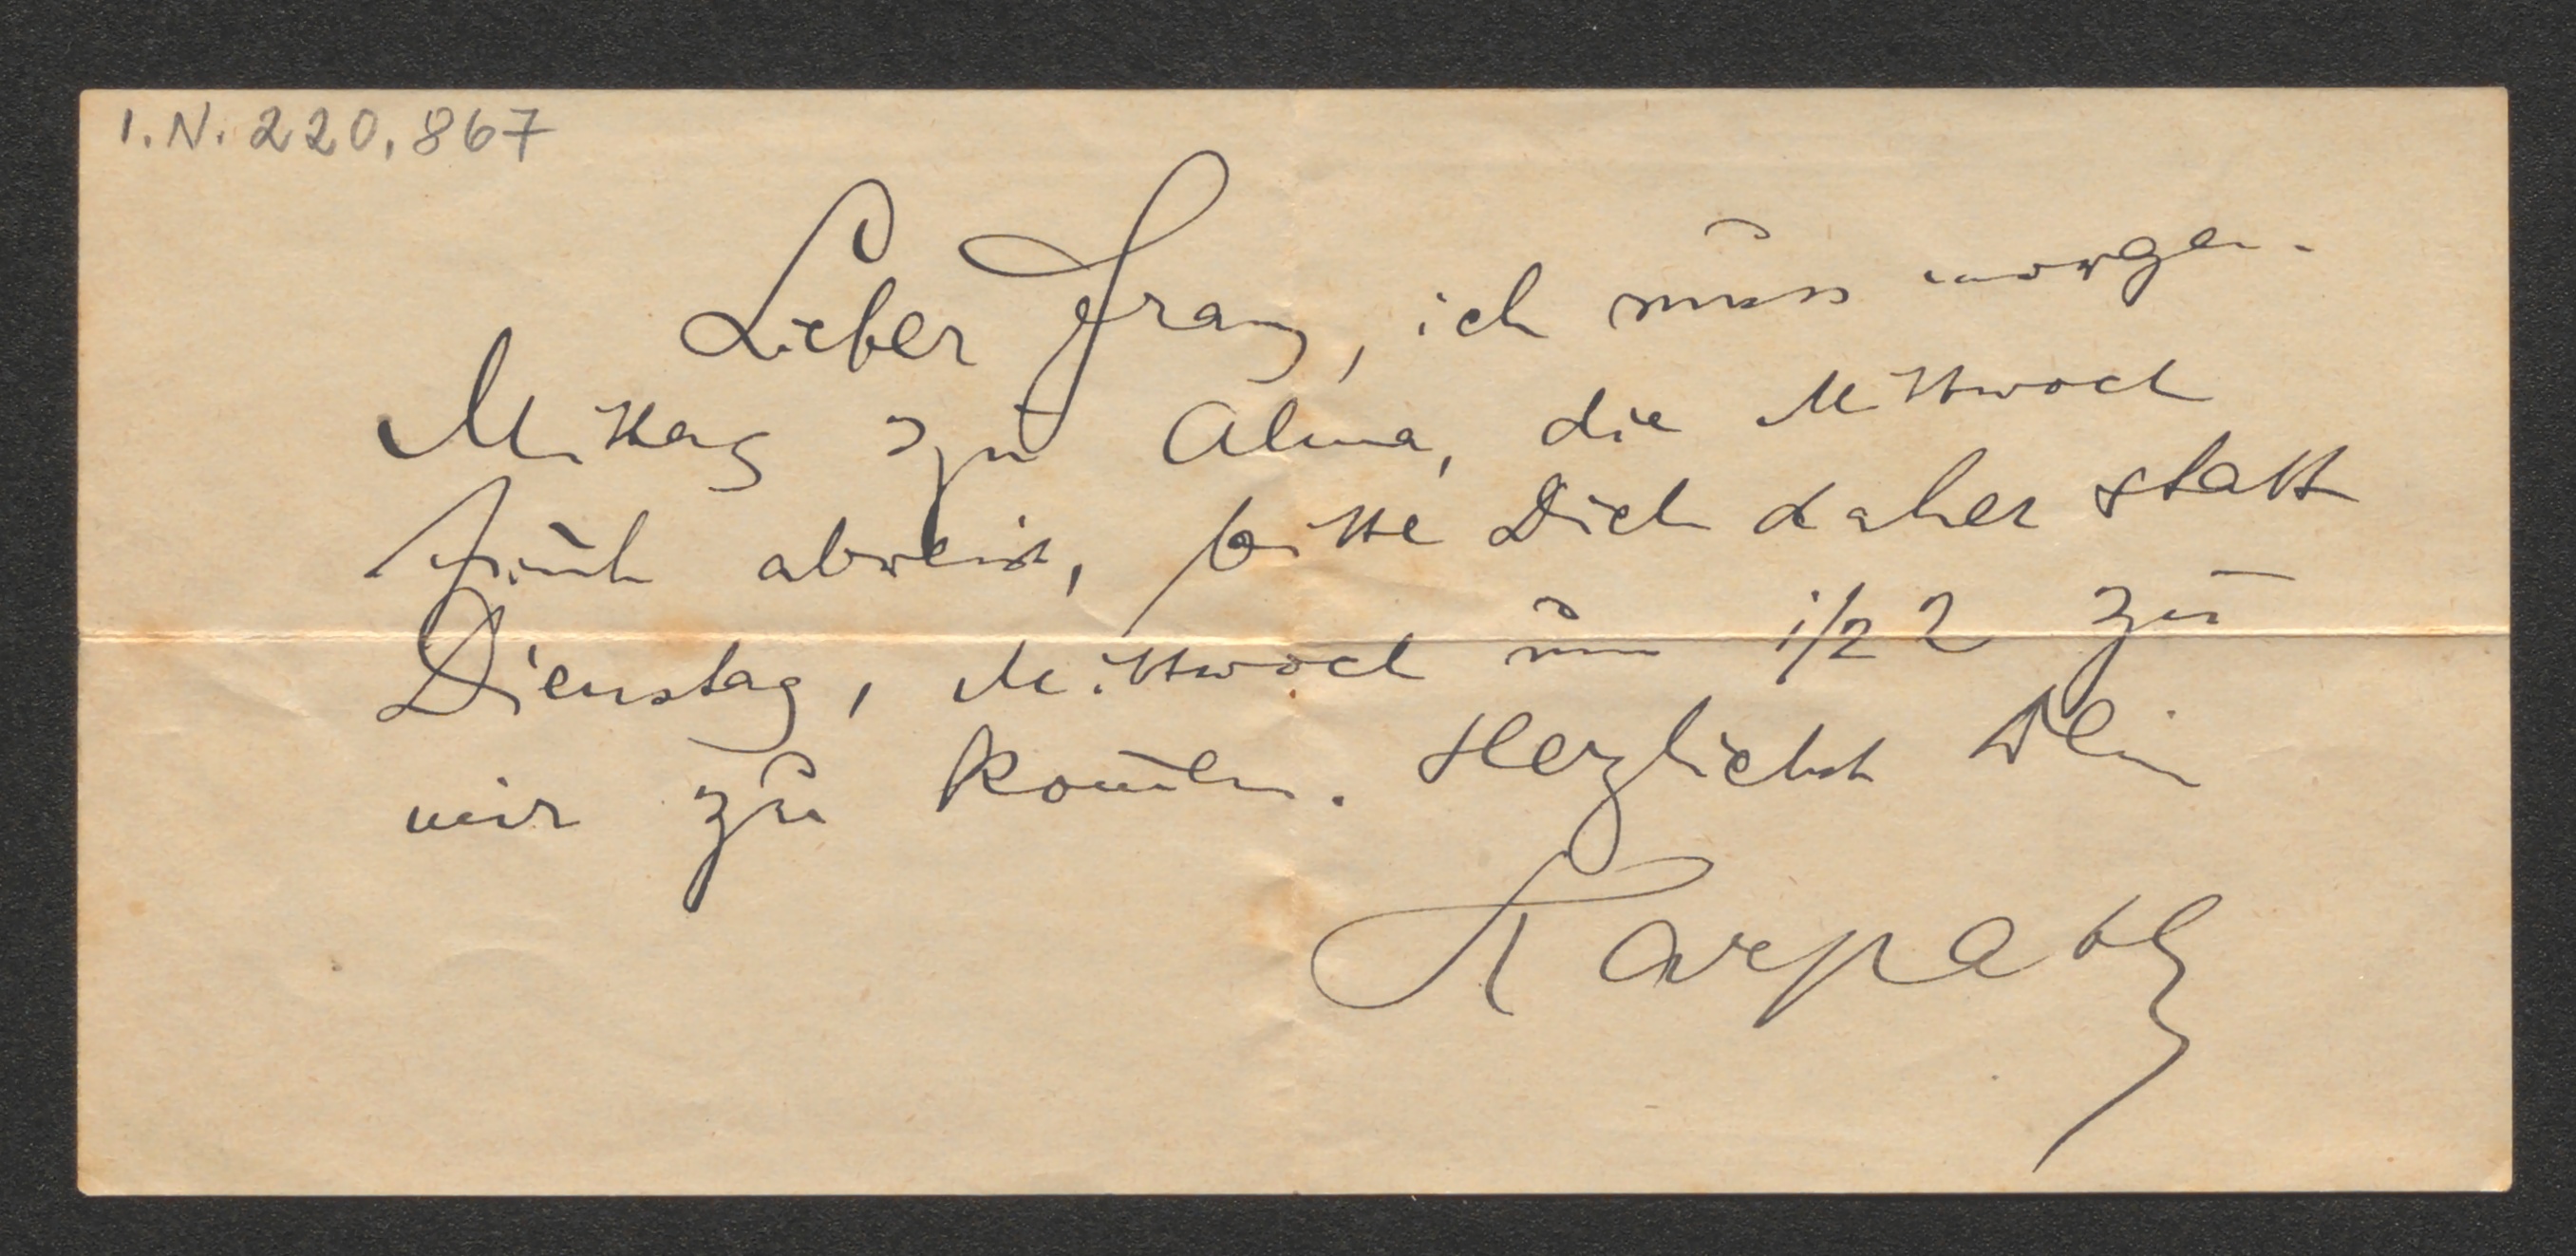 I.N. 220,867
Lieber Franz, ich muss morgen
Mittag zu Alma, die Mittwoch
früh abreist, bitte Dich daher statt
Dienstag, Mittwoch um 1/2 2 zu
mir zu kom̄en. Herzlichst Dein
Karpath